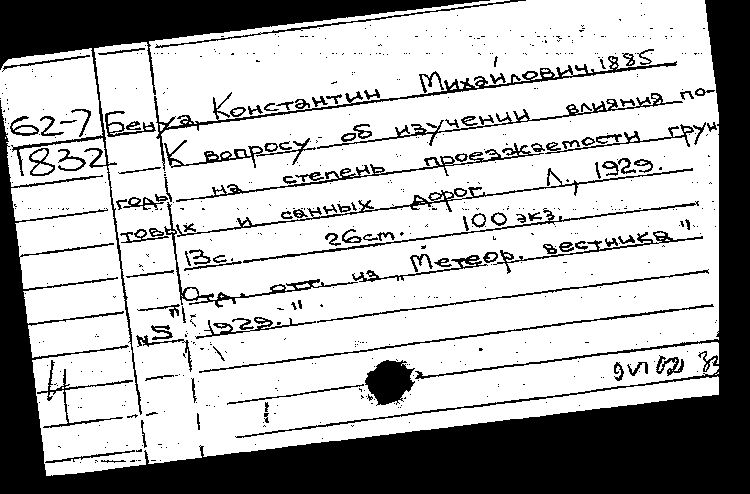 62-7
1832
Бенуа, Константин Михайлович, 1885
К вопросу об изучении влияния по-
годы на степень проезжаемости грун-
товых и санных дорог. Л., 1929.
13с. 26см. 100 экз.
Отд. отт. из „Метеор. вестника"
№5" 1929.,"
4
1